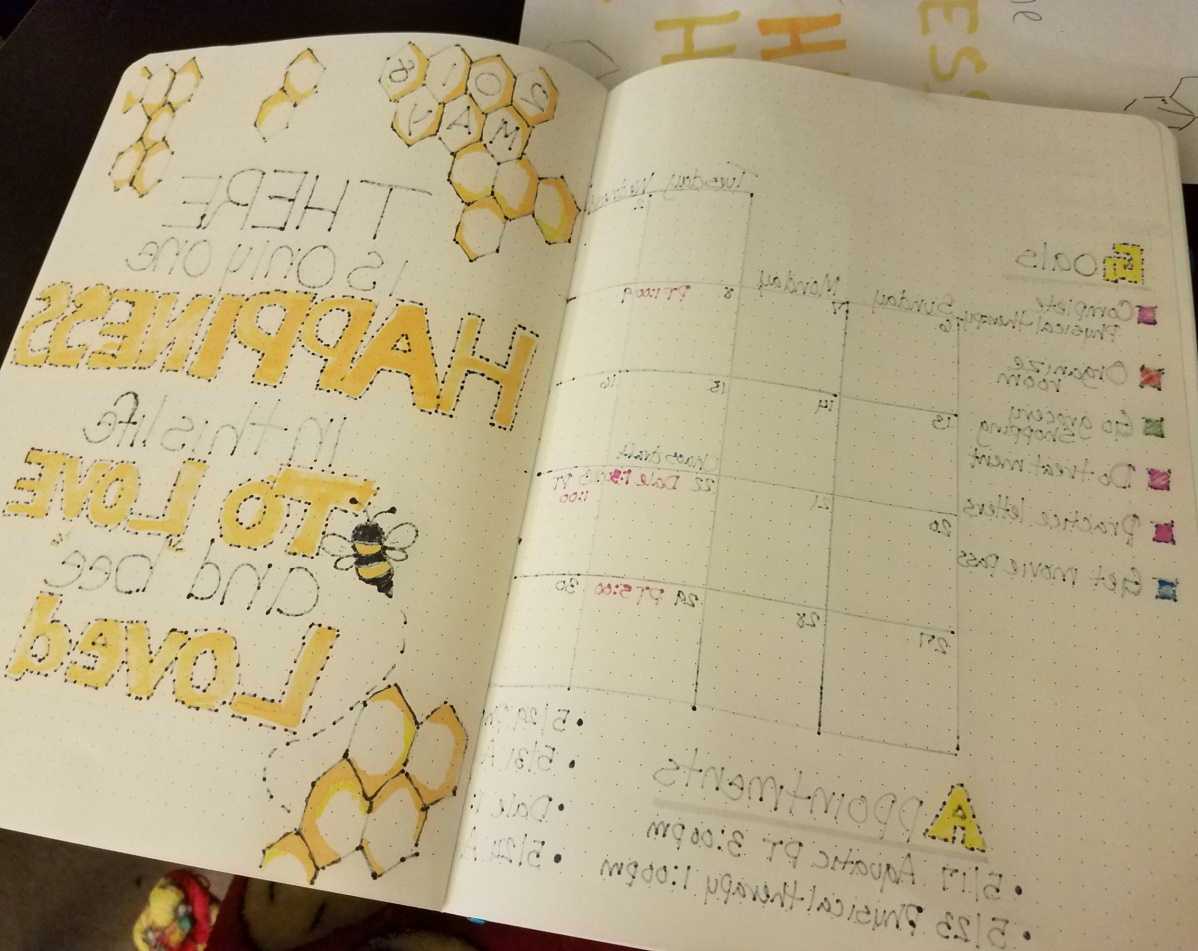 2018
MAY
THERE
is only one
HAPPINESS
in this life
TO LOVE
and bee
Loved
Goals
Complete
Physical therapy
Organize
room
Go grocery
shopping
Do treatment
Practice letters
Get movie pass
Sunday Monday Tuesday
6 7 8 PT 1:00 9
13 14 15 16
20 21 22 Dale PT
1:00
27 28 29 PT 5:00 30
Appointments
• 5/17 Aquatic PT 3:00pm
• 5/23 Physical therapy 1:00pm
• 5/29
• 5/31 A
• Dale 1: